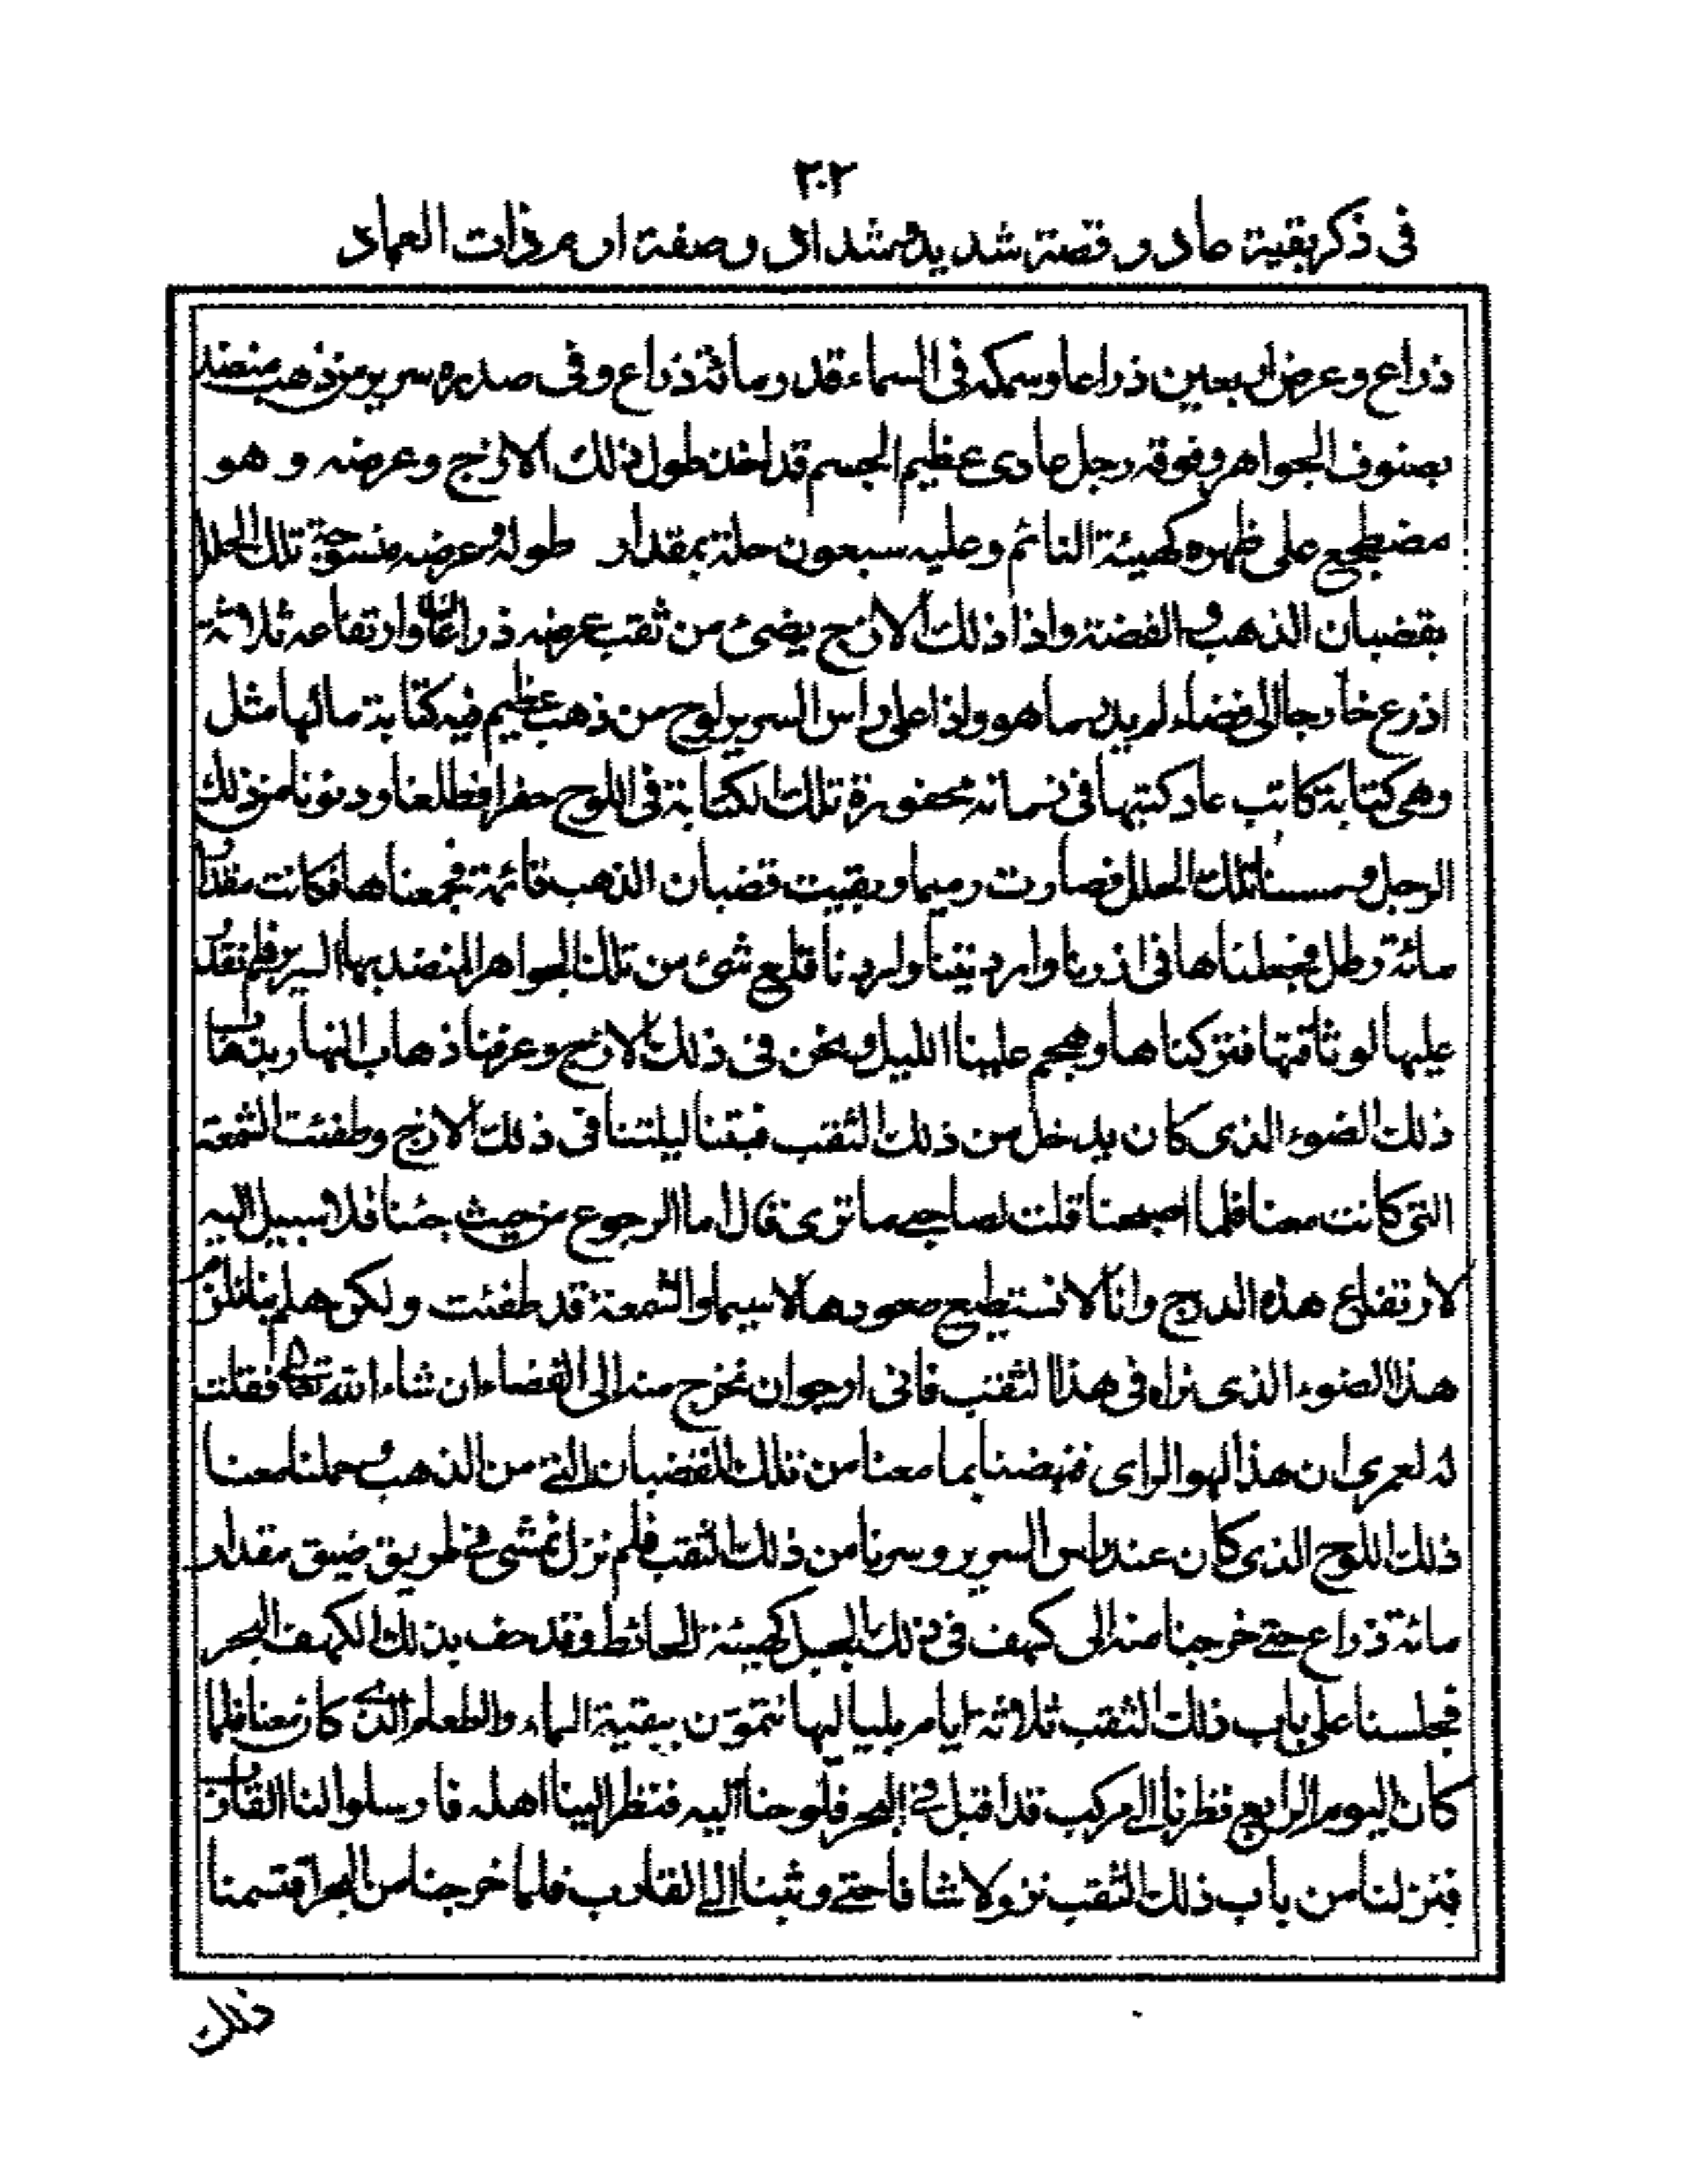 ٣٠٢
في ذكر بقية عاد و قصة شديد وشداد و صفة ارم ذات العماد
ذراع وعرض اربعين ذراعا وسمكه فى السماء قدر مائة ذراع وفى صدره سرير من ذهب منضد
بصنوف الجواهر وفوقه رجل عادى عظيم الجسم قد اخذ طول ذلك الازج وعرضه و هو
مضطجع على ظهره كهيئة النائم وعليه سبعون حلة بمقدار طوله وعرضه منسوجة تلك الحلل
بقضبان الذهب والفضة واذا ذلك الازج يضئ من ثقب عرضه ذراعا وارتفاعه ثلاثة
اذرع خارجا الى فضاء لم يدر ما هو واذا على راس السرير لوح من ذهب عظيم فيه كتابة مالها مثل
وهى كتابة كاتب عاد كتبها فى زمانه محفورة تلك الكتابة فى اللوح حفرا فطلعنا ودنونا من ذلك
الرجل ومسسنا تلك الحلل فصارت رميما وبقيت قضبان الذهب قائمة فجمعناها فكانت مقدار
مائة رطل فجعلناها فى اذرنا وارديتنا واردنا قلع شئ من تلك الجواهر المنضد بها السرير فلم نقدر
عليها لوثاقتها فتركناها وهجم علينا الليل ونحن فى ذلك الازج وعرفنا ذهاب النهار بذهاب
ذلك الضوء الذى كان يدخل من ذلك الثقب فبتنا ليلتنا فى ذلك الازج وطفئت الشمعة
التى كانت معنا فلما اصبحنا قلت لصاحبى ما ترى قال اما الرجوع من حيث جئنا فلا سبيل اليه
لارتفاع هذه الدرج وانا لا نستطيع صعودها لا سيما والشمعة قد طفئت ولكن هلم بنا نلزم
هذا الضوء الذى نراه فى هذا الثقب فانى ارجوان نخرج منه الى الفضاء ان شاء الله تعالى فقلت
له لعمرى ان هذا لهو الراى فنهضنا بما معنا من تلك القضبان التى من الذهب وحملنا معنا
ذلك اللوح الذى كان عند راس السرير وسرنا من ذلك الثقب فلم نزل نمشى فى طريق ضيق مقدار
مائة ذراع حتى خرجنا منه الى كهف فى ذلك الجبل كهيئة الحائط وقد حف بذلك الكهف البحر
فجلسنا على باب ذلك الثقب ثلاثة ايام بلياليها نتموّن ببقية الماء والطعام الذى كان معنا فلما
كان اليوم الرابع نظرنا الى مركب قد اقبل فى البحر فلوحنا اليه فنظر الينا اهله فارسلوا لنا القارب
فنزلنا من باب ذلك الثقب نزولا شاقا حتى وثبنا الى القارب فلما خرجنا من البحر اقتسمنا
ذلك